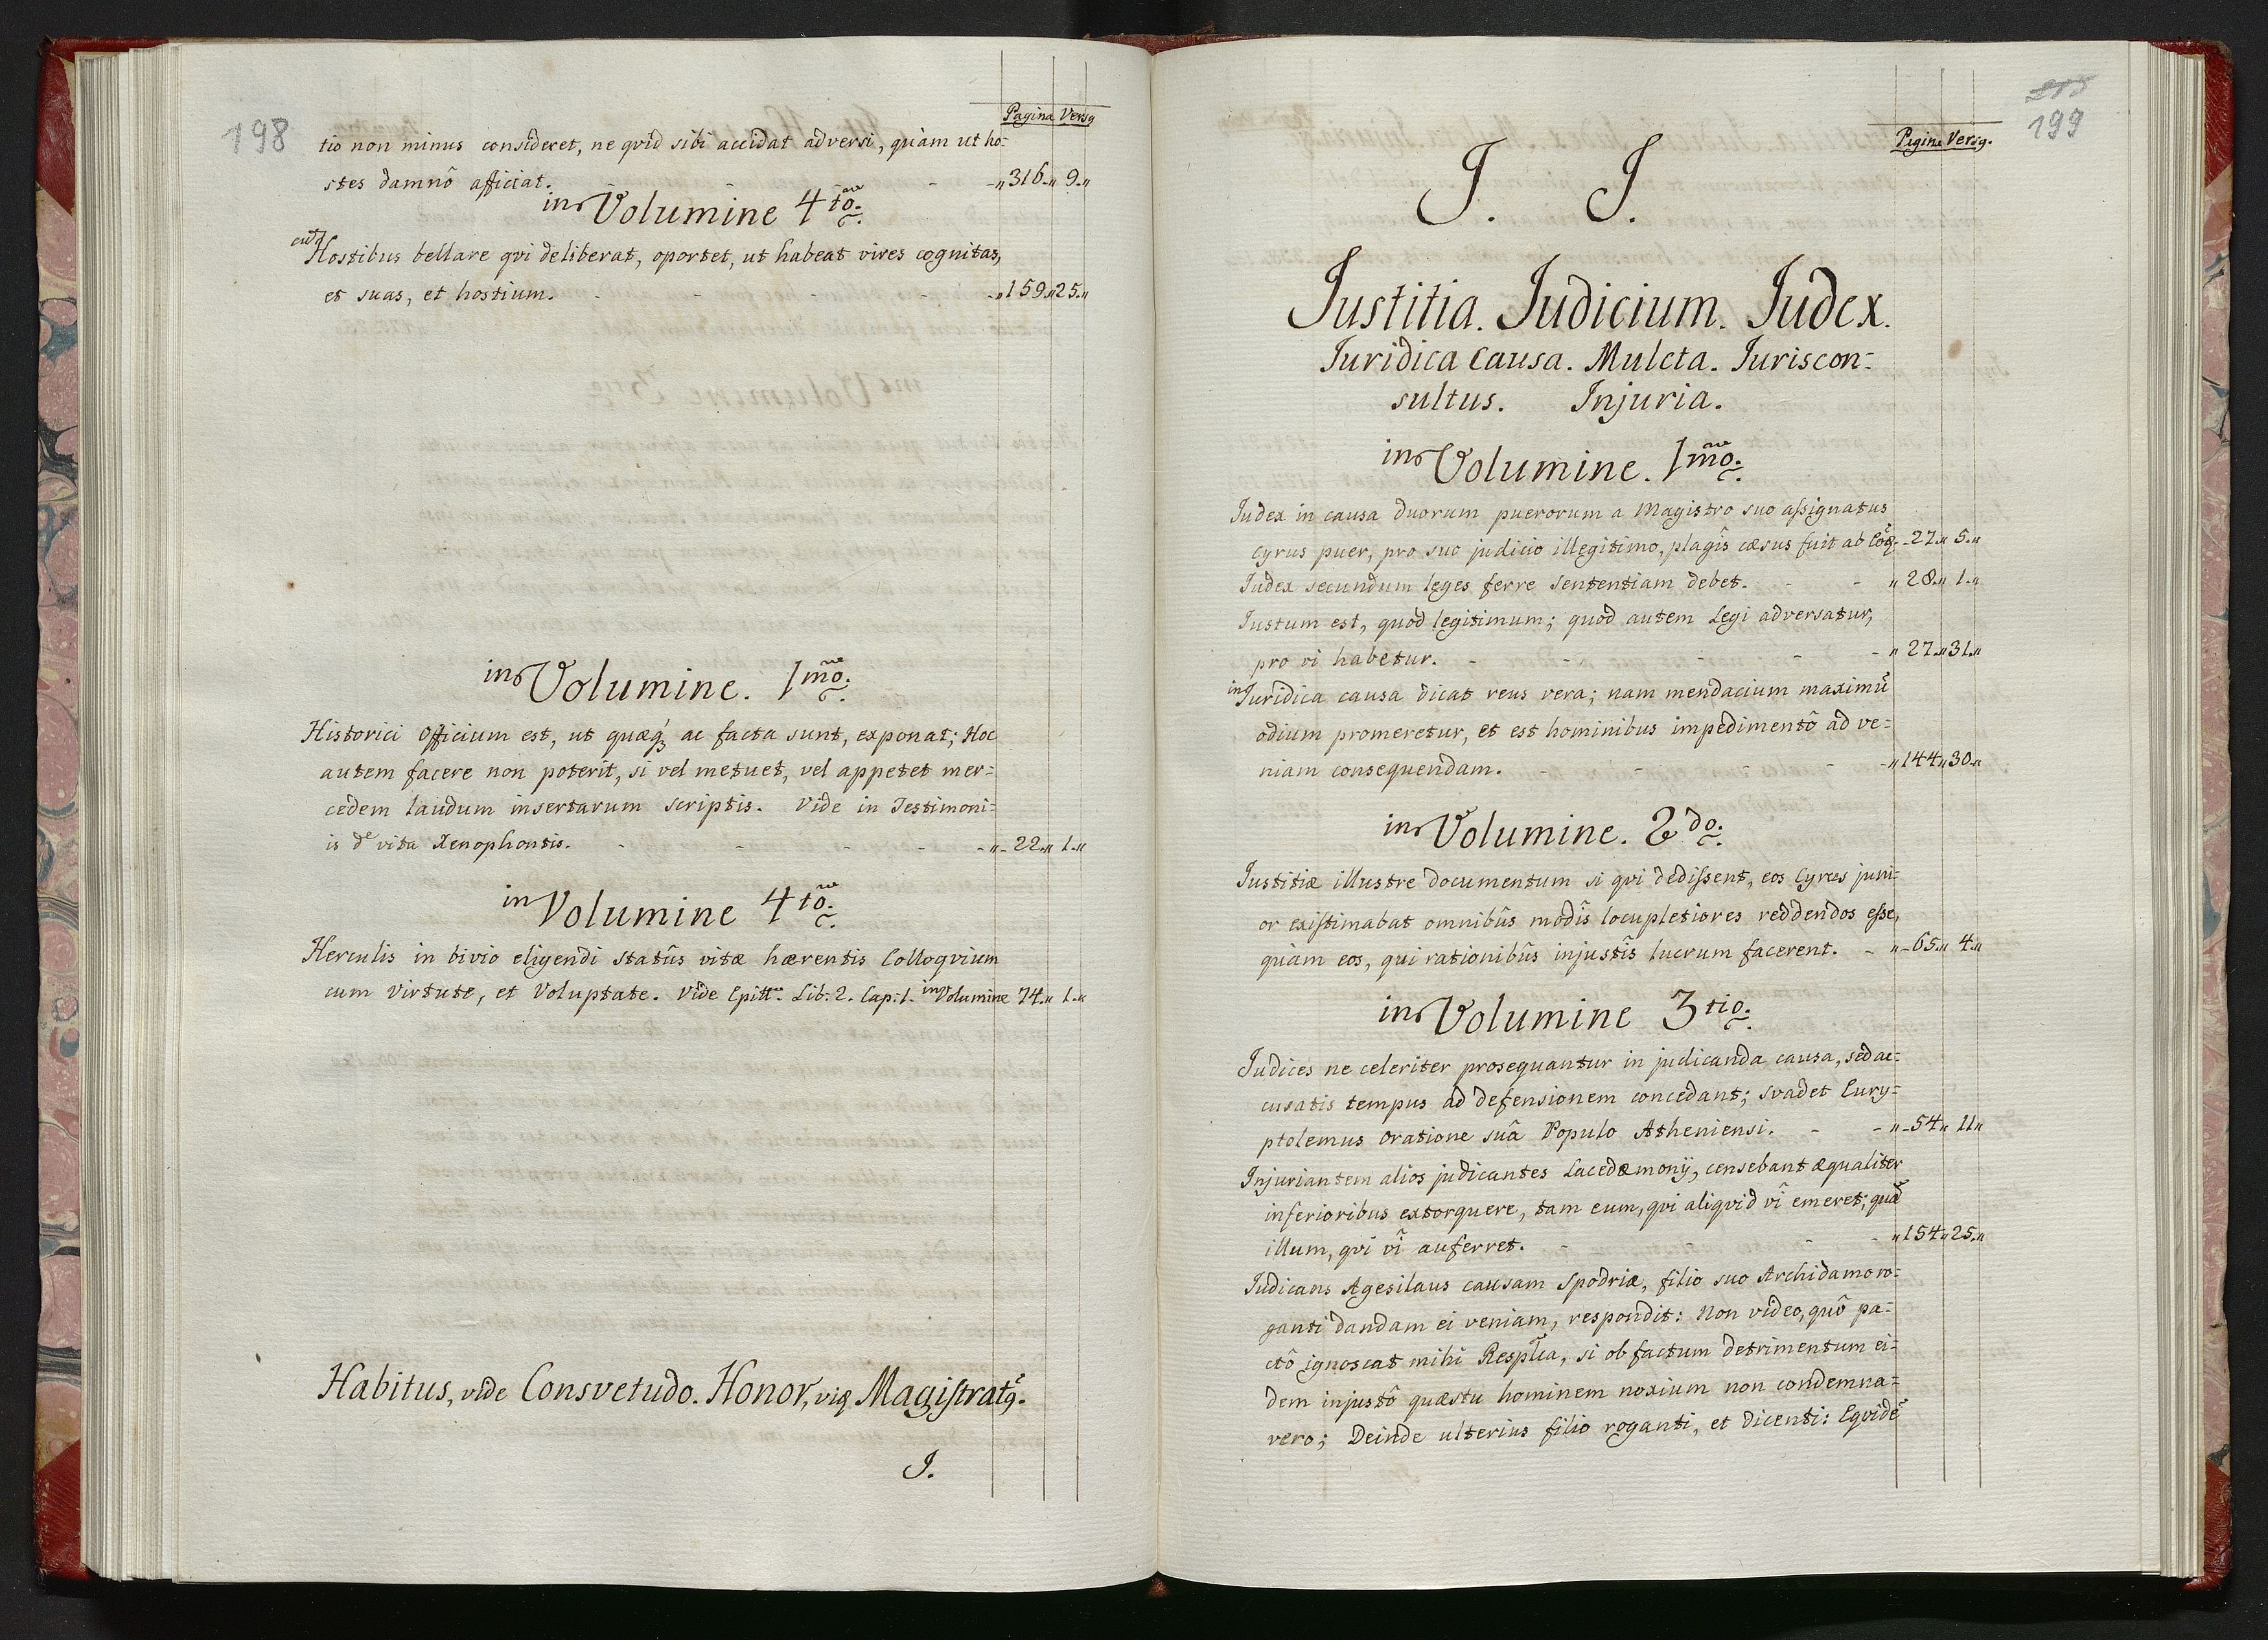 198
Pagina Versq
tio non minus consideret, ne qvid sibi accidat adversi, quàm ut ho=
stes damnô afficiat. - - - „316.„ 9.„
in Volumine 4to.
cum Hostibus bellare qvi deliberat, oportet, ut habeat vires cognitas,
et suas, et hostium. - - - - „159.„25.„
in Volumine. 1mo.
Historici officium est, ut quæq; ac facta sunt, exponat; Hoc
autem facere non poterit, si vel metuet, vel appetet mer=
cedem laudum insertarum scriptis. Vide in Testimoni=
is de vita Xenophontis. - - - - „ 22.„ 1.„
in Volumine 4to.
Herculis in bivio eligendi statûs vitæ hærentis Colloqvium
cum Virtute, et Voluptate. Vide Epitt. Lib: 2. Cap: 1. in Volumine 74.„ 1.„
Habitus, vide Consvetudo. Honor, vid Magistratq.
J.
199
Pagina Versq.
J. J.
Justitia. Judicium. Judex.
Juridica causa. Mulcta. Juriscon=
sultus. Injuria.
in Volumine. 1mo.
Judex in causa duorum puerorum a Magistro suo assignatus
Cyrus puer, pro suo judicio illegitimo, plagîs cæsus fuit ab Eôd. - 27.„ 5.„
Judex secundum leges ferre sententiam debet. - - „ 28.„ 1.„
Justum est, quod legitimum; quod autem Legi adversatur,
pro vi habetur. - - - - - „ 27.„31.„
in Juridica causa dicat reus vera; nam mendacium maximũ
odium promeretur, et est hominibus impedimentô ad ve=
niam consequendam. - - - - „144„30.„
in Volumine. 2do.
Justitiæ illustre documentum si qvi dedissent, eos Cyrus juni=
or existimabat omnibûs modîs locupletiores reddendos esse,
quàm eos, qui rationibûs injustîs lucrum facerent. - „ 65.„ 4.„
in Volumine 3tio.
Judices ne celeriter prosequantur in judicanda causa, sed ac=
cusatis tempus ad defensionem concedant; svadet Eury=
ptolemus oratione suâ Populo Atheniensi. - - „ 54„ 11„
Injuriantem alios judicantes Lacedæmonij, censebant æqualiter
inferioribus extorquere, tam eum, qvi aliqvid vî emeret, quã
illum, qvi vî auferret. - - - - „154„25.„
Judicans Agesilaus causam Spodriæ, filio suo Archidamo ro=
ganti dandam ei veniam, respondit: Non video, quô pa=
ctô ignoscat mihi Resplca, si ob factum detrimentum ei=
dem injustô quæstu hominem noxium non condemna=
vero; Deinde ulterius filio roganti, et dicenti: Eqvidẽ